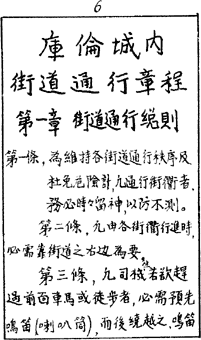 6
庫倫城内
街道通行章程
第一章 街道通行総則
第一條，為維持各街道通行秩序及
杜免危險計，凢通行街衢者，
務必時々留神，以防不測。
第二條，凢由各街衢行進時，
必需靠街道之右边為要。
第三條，凢司机者欲趕
過前面車馬或徒步者，必需預先
鳴笛（喇叭筒），而後繞越之，鳴笛